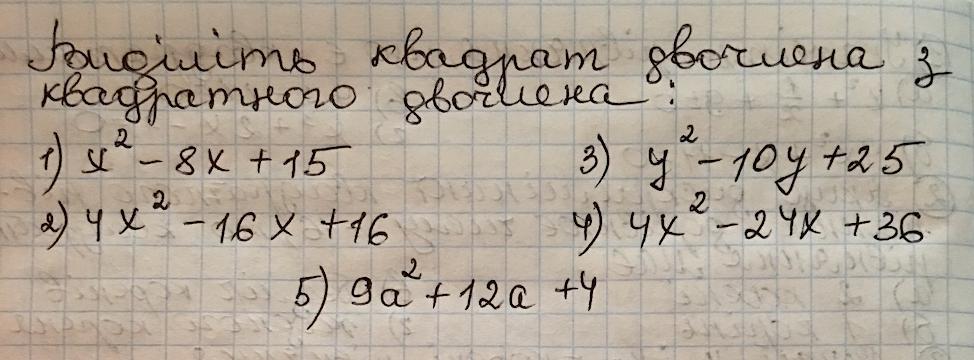 Виділіть квадрат двочлена з
квадратного двочлена:
1) x² - 8x + 15
3) y² - 10y + 25
2) 4x² - 16x + 16
4) 4x² - 24x + 36
5) 9a² + 12a + 4